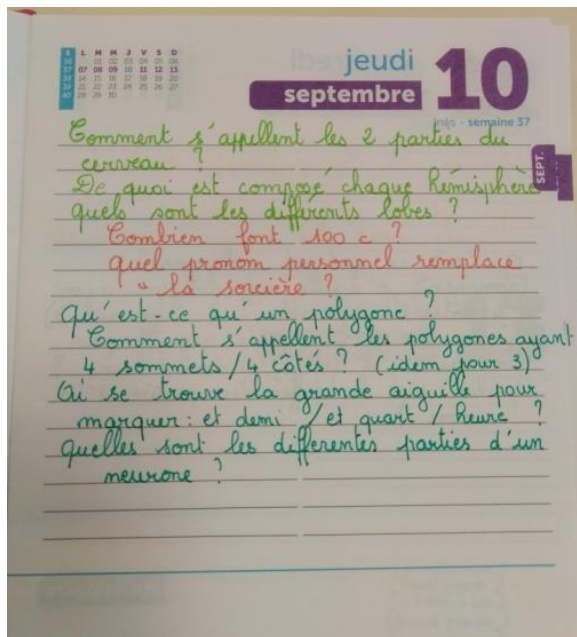 S L M M J V S D
36 01 02 03 04 05 06
37 07 08 09 10 11 12 13
38 14 15 16 17 18 19 20
39 21 22 23 24 25 26 27
40 28 29 30
jeudi
septembre 10
Inès - semaine 37
SEPT.
Comment s'appellent les 2 parties du
cerveau ?
De quoi est composé chaque hémisphère
quels sont les différents lobes ?
Combien font 100 c ?
quel pronom personnel remplace
" la sorcière ?
Qu'est-ce qu'un polygone ?
Comment s'appellent les polygones ayant
4 sommets / 4 côtés ? (idem pour 3)
Où se trouve la grande aiguille pour
marquer : et demi / et quart / heure ?
quelles sont les différentes parties d'un
neurone ?